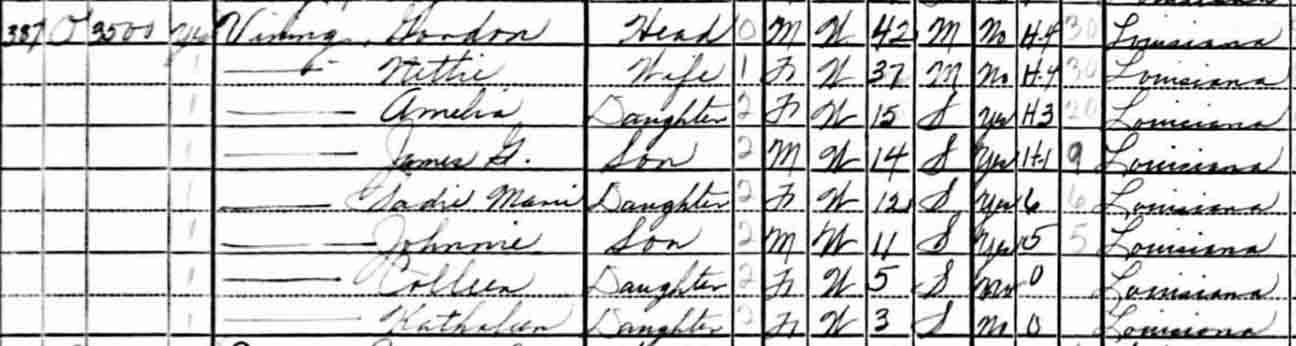 387 O 3500 Yes Vining, Gordon Head 0 M W 42 M No H-4 30 Louisiana
1 — Nettie Wife 1 F W 37 M No H-4 30 Louisiana
1 — Amelia Daughter 2 F W 15 S Yes H3 20 Louisiana
1 — James G. Son 2 M W 14 S Yes H-1 9 Louisiana
1 — Sadie Marie Daughter 2 F W 12 S Yes 6 6 Louisiana
1 — Johnnie Son 2 M W 11 S Yes 5 5 Louisiana
1 — Colleen Daughter 2 F W 5 S No 0 Louisiana
1 — Kathaleen Daughter 2 F W 3 S No 0 Louisiana